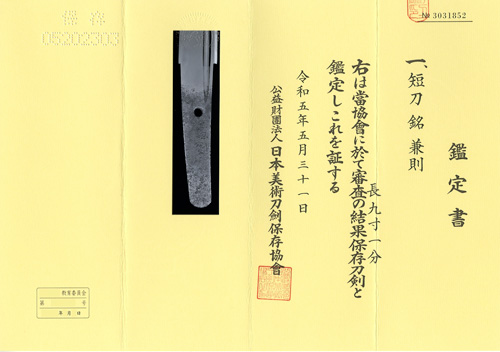 鑑定書
一、短刀 銘 兼則
長九寸一分
右は當協會に於て審査の結果保存刀剣と
鑑定しこれを証する
令和五年五月三十一日
公益財團法人 日本美術刀剣保存協會
№ 3031852
保存
05202303
教育委員会
第 号
年 月 日